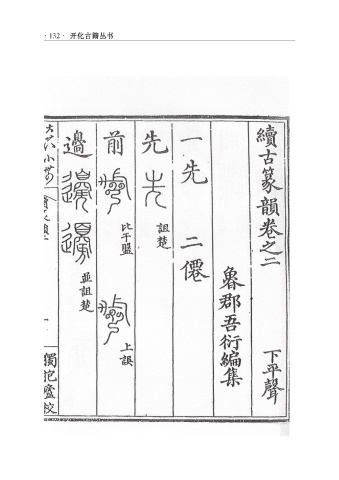 · 132 · 开化古籍丛书
續古篆韻卷之二
下平聲
魯郡吾衍編集
一先 二僊
先 詛楚
前 比干盤 上誤
邉 並詛楚
獨抱廬校